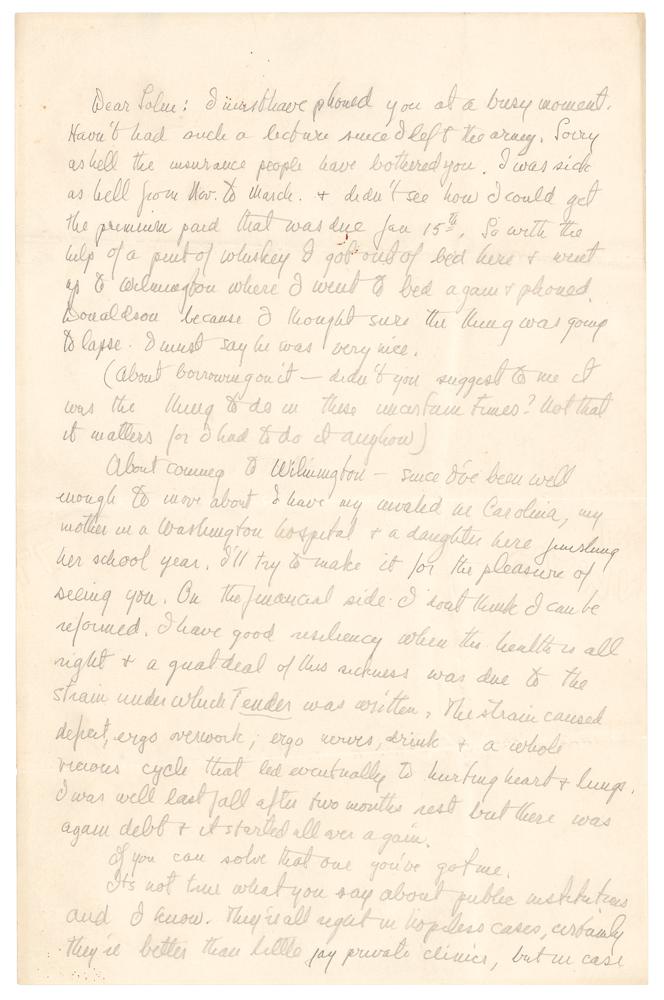 Dear John: I must have phoned you at a busy moment.
Havn't had such a lecture since I left the army. Sorry
as hell the insurance people have bothered you. I was sick
as hell from Nov. to March. + didn't see how I could get
the premium paid that was due Jan 15th. So with the
help of a pint of whiskey I got out of bed here + went
up to Wilmington where I went to bed again + phoned
Donaldson because I thought sure the thing was going
to lapse. I must say he was very nice.
(About borrowing on it — didn't you suggest to me it
was the thing to do in these uncertain times? Not that
it matters for I had to do it anyhow)
About coming to Wilmington — since I've been well
enough to move about I have my invalid in Carolina, my
mother in a Washington hospital + a daughter here finishing
her school year. I'll try to make it for the pleasure of
seeing you. On the financial side I don't think I can be
reformed. I have good resiliency when the health is all
right + a great deal of this sickness was due to the
strain under which Tender was written. The strain caused
defeat, ergo overwork; ergo nerves, drink + a whole
vicious cycle that led eventually to hurting heart + lungs.
I was well last fall after two months rest but there was
again debt + it started all over again.
If you can solve that one you've got me.
It's not true what you say about public institutions
and I know. They're all right in hopeless cases, certainly
they're better than little jay private clinics, but in case